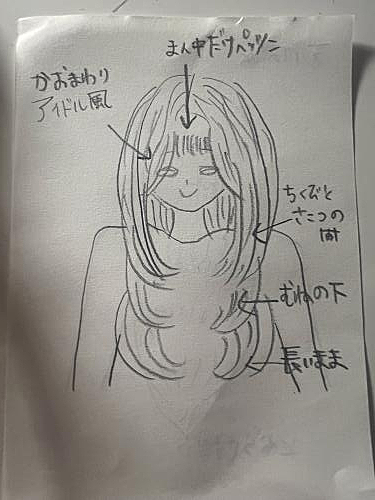 まん中だけパッツン
かおまわり
アイドル風
ちくびと
さこつの
間
むねの下
長いまま